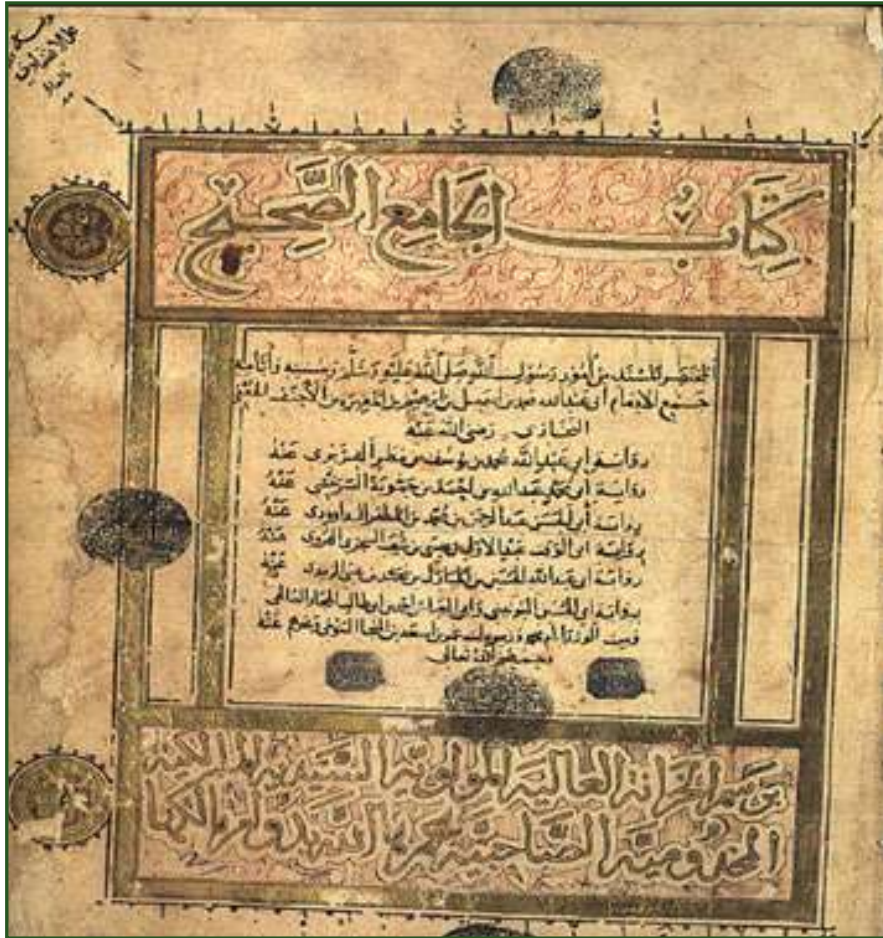 كتاب الجامع الصحيح
المختصر المسند من أمور رسول الله صلى الله عليه وسلم وسننه وأيامه
جميع الإمام أبي عبد الله محمد بن إسمعيل بن إبراهيم بن المغيرة بن الأحنف الجعفي
البخاري رضي الله عنه
رواية أبي عبد الله محمد بن يوسف بن مطر الفربري عنه
رواية أبي محمد عبد الله بن أحمد بن حمويه السرخسي عنه
رواية أبي الحسن عبد الرحمن بن محمد بن المظفر الداوودي عنه
رواية أبي الوقت عبد الأول بن عيسى بن شعيب السجزي الهروي عنه
رواية أبي عبد الله الحسين بن المبارك بن محمد بن يحيى الزبيدي عنه
برواية أبي العباس أحمد بن أبي طالب الحجار الصالحي
وست الوزراء بن أسعد بن المنجا التنوخي عنه
رحمهم الله تعالى
برسم الخزانة العالية المولوية السيدية المالكية
المخدومية الصاحبية